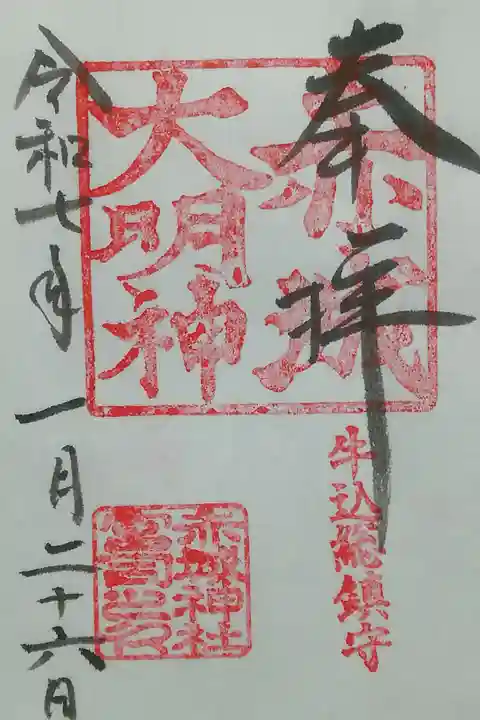 奉拝
赤城
大明神
牛込総鎮守
赤城神社
令和七年 一月二十六日